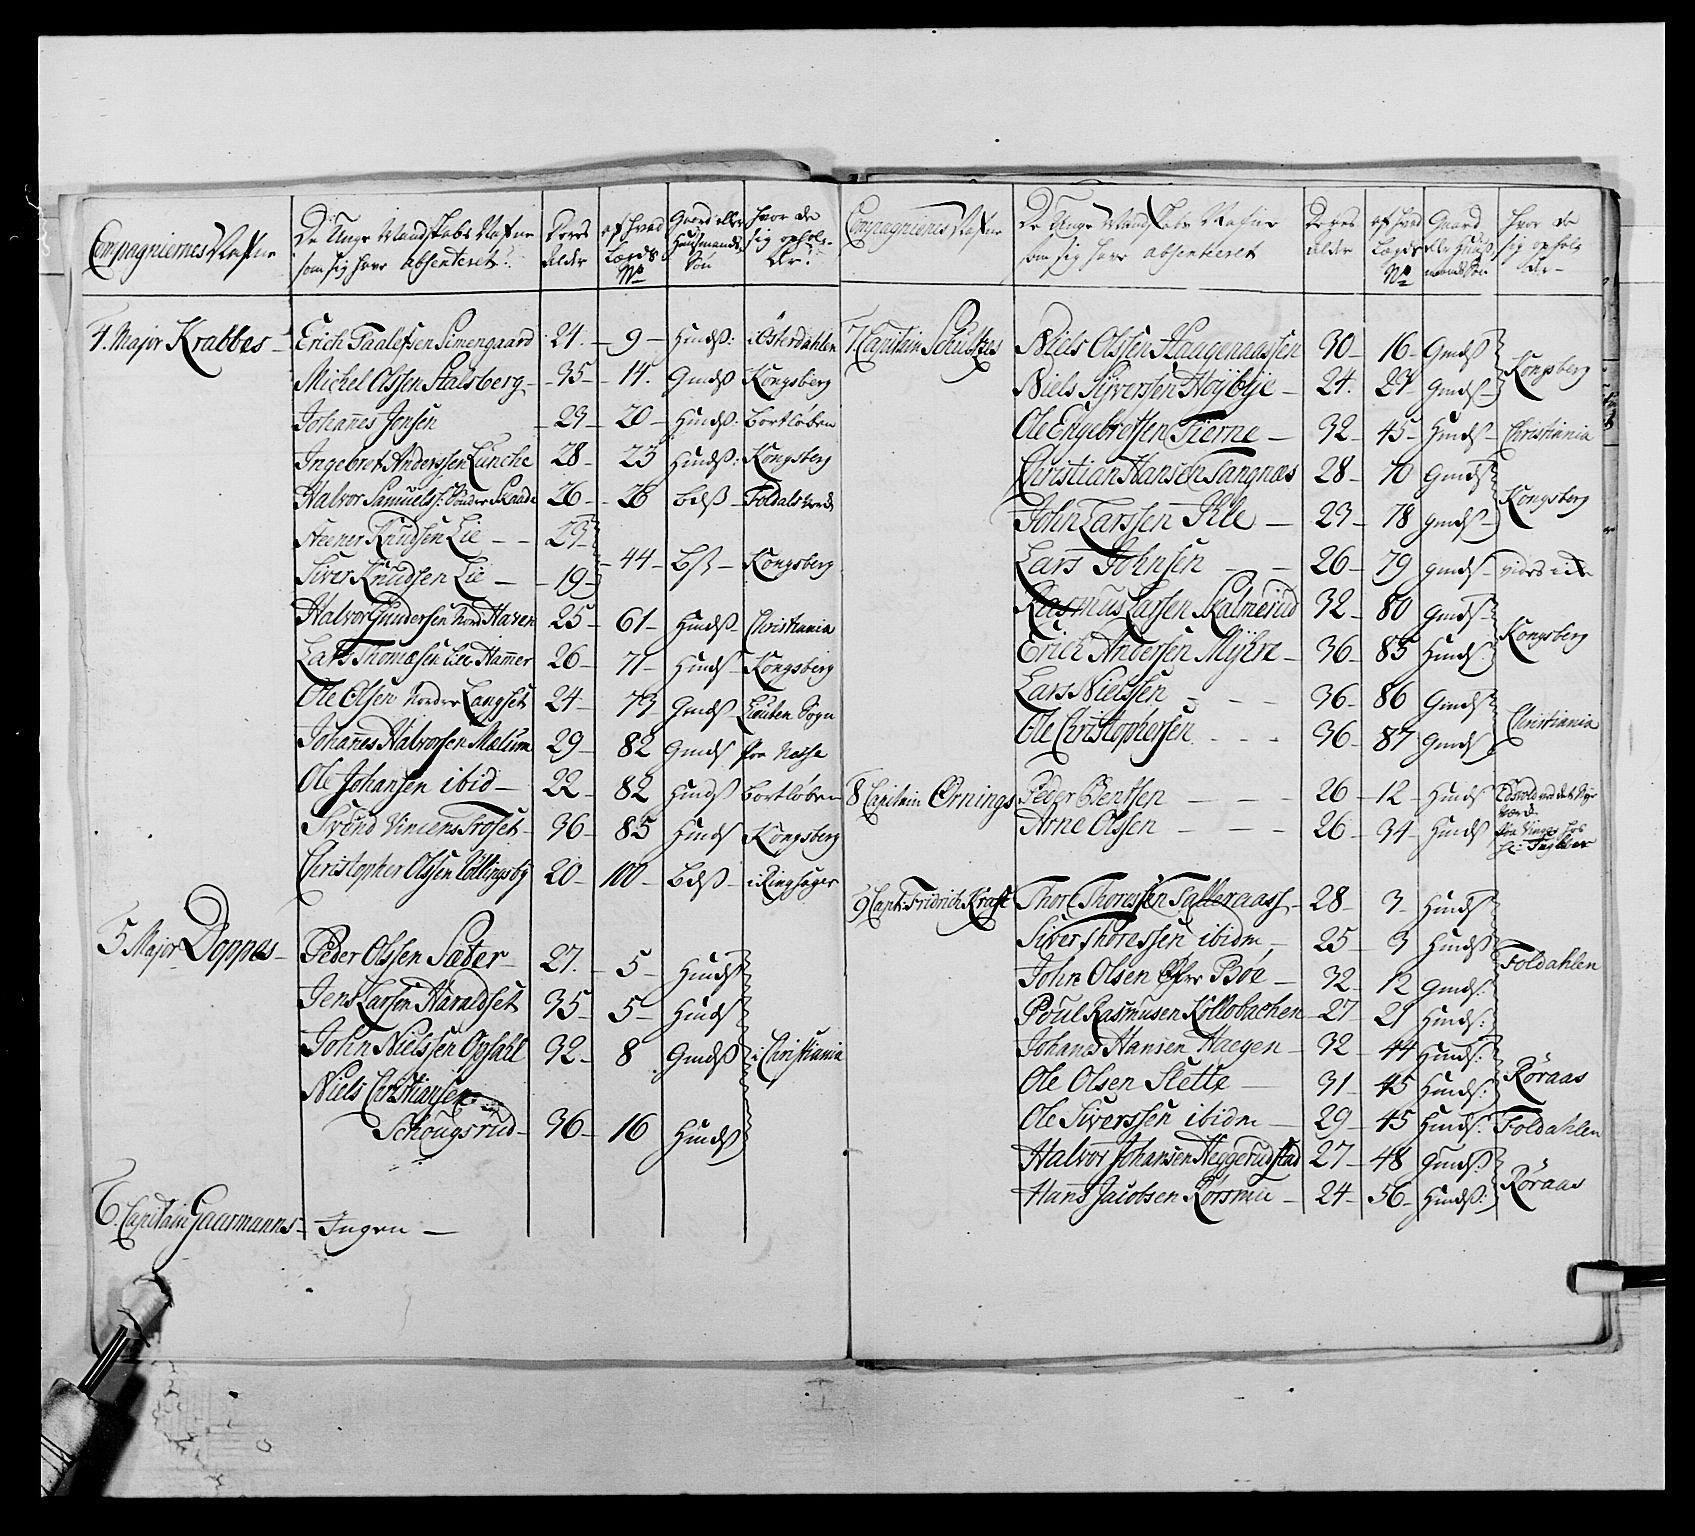 Compagniernes Nafne | De Unge Mandskabs Nafne som sig have absenteret | Deres alder | af hvad Lægds No | Gaard eller Huusmands Søn | hvor de sig opholder
4. Major Krabbes - Erich Paalessen Simengaard 21. - 9 - Hmdß: i Østerdahlen
Michel Olssen Stalsberg - 35 - 14. Gmdß Kongsberg
Johannes Jensen - 23 - 20 - Hmdß: bortløben
Ingebret Anderssen Lunche 28 - 25 Hmdß: Kongsberg
Halvor Samuels: Skaade 26 - 26 - bdß - Foldals
Steener Knudsen Lie - - 23
Siver Knudsen Lie - - 19 - 44 - bß - Kongsberg
Halvor Gundersen Nord Haven 25 - 61 - Hmdß - Christiania
Lars Thomæsen Lille Hammer 26 - 71 - Hmdß - Kongsberg
Ole Olsen Nordre Langset 24 - 73 - Gmdß Sogn
Johannes Halvorssen Mælum 29 - 82 Gmdß Paa Næsse
Ole Johansen ibid - 22 - 82 Hmdß bortløben
Svend Trøset - 36 - 85 Hmdß Kongsberg
Christopher Olssen Kollingsby 20 - 100 - bdß - i Ringsager
5 Major Doppes - Peder Olssen Sæter - 27. - 5 - Hmdß
Jens Larsen Haraldset 35 - 5 - Hmdß
John Nielssen Opsahl 32 - 8 Gmdß i Christiania
Niels Christiansen
Schougsrud - 36 - 16 Hmdß
6. Capitain Gaarmanns - Ingen -
Compagniernes Nafne | De Unge Mandskabs Nafne som sig have absenteret | Deres alder | af hvad Lægds No | Gaard eller Huusmands Søn | hvor de sig opholder -
7. Capitain Schultzes Niels Olssen Haagenaassen 30 - 16 - Gmdß
Niels Syversen Høybye - 24. 27 - Gmdß - Kongsberg
Ole Engebretsen Tierne - 32 - 45 - Hmdß - Christiania
Christian Hansen Tangnæs 28 - 70 Gmdß
John Larssen Ihle - 23 - 78 Gmdß - Kongsberg
Lars Johnsen - - 26 - 79 Gmdß -
Rasmus Larsen Skalmerud 32 - 80 Gmdß
Erich Andersen Myhre - 36 - 85 Hmdß Kongsberg
Lars Nielssen - - - 36 - 86 Gmdß
Ole Christophersen - - - 36 - 87 Gmdß Christiania
8 Capitain Ørnings Peder Bentsen - - - 26 - 12 - Hmdß
Arne Olssen - - - 26 - 34 - Hmdß
9 Capt: Fridrich Kraft Thor Thoressen Tallaraass - 28 - 3 - Hmdß
Siver Thoressen ibidm - 25 - 3 Hmdß
John Olsen Øfre Bøe - 32 - 12 Gmdß: Foldahlen
Poul Rasmusen Kollobachen - 27 - 21 Hmdß:
Johanes Hansen Haegen - 32 - 44 Hmdß:
Ole Olsen Slette - 31 - 45 Hmdß: Røraas
Ole Siverssen ibidm - 29 - 45 Hmdß: Foldahlen
Halvor Johansen Heggerudstad 27 - 48 Gmdß
Hans Jacobsen Rørsmie - 24 - 56 - Hmdß: Røraas